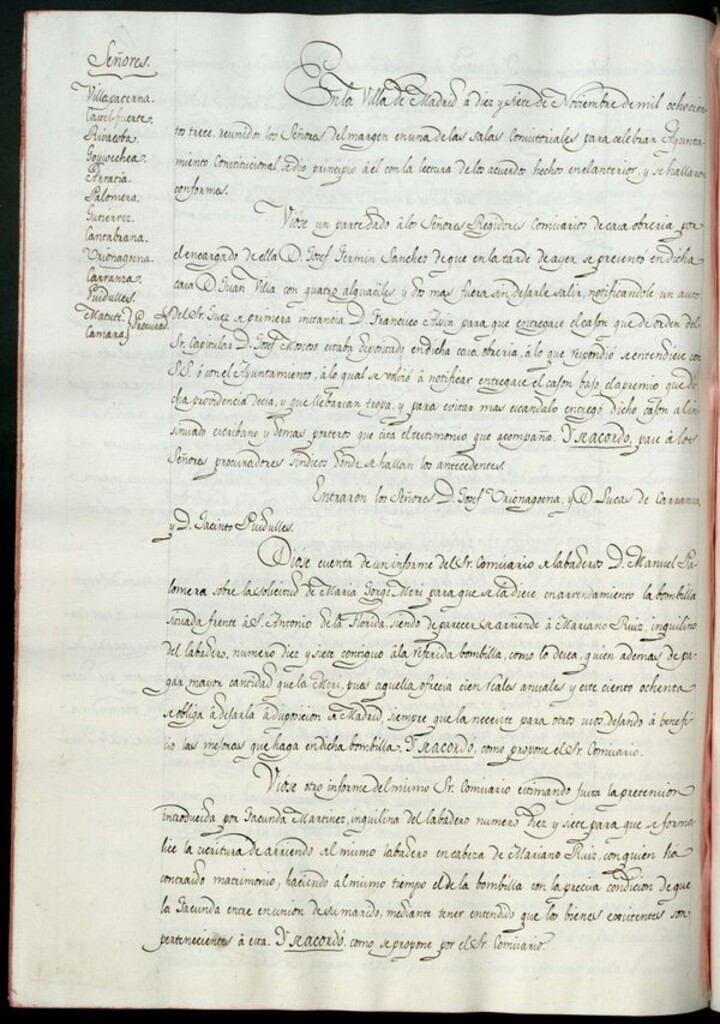 Señores.
Villapaterna.
Castel-fuerte.
Rivacoba.
Goycochea.
Arratia.
Palomera.
Gutierrez.
Cantabrana.
Urionagoena.
Carranza.
Puidulles.
Matute. } Procurad.s
Camara.
En la Villa de Madrid á diez y siete de Noviembre de mil ochocien
tos trece, reunidos los Señores del margen en una de las salas Consistoriales para celebrar Ayunta-
miento Constitucional se dió principio á él con la lectura de los acuerdos hechos en el anterior, y se hallaron
conformes.
Viose un parte dado á los Señores Regidores Comisarios de casa obreria por
el encargado de ella D. Josef Fermin Sanchez de que en la tarde de ayer se presentó en dicha
casa D. Juan Villa con quatro alguaciles y dos mas fuera sin dejarle salir, notificandole un auto
del Sr. Juez de primera instancia D. Francisco para que entregase el cajon que de orden del
Sr. Capitular D. Josef Moscoso estaba depositado en dicha casa obreria, á lo que respondió se entendiese con
S.S. ó con el Ayuntamiento, á lo qual se volvió á notificar entregase el cajon bajo el apremio que di-
cha providencia decia, y que llebarian tropa, y para evitar mas escandalo entregó dicho cajon al in-
sinuado escribano y demas porteros que cita el testimonio que acompaña. Y se acordó, pase á los
Señores procuradores sindicos donde se hallan los antecedentes.
Entraron los Señores D. Josef Urionagoena, y D. Lucas de Carranza,
y D. Jacinto Puidulles.
Diose cuenta de un informe del Sr. Comisario de labaderos D. Manuel Pa-
lomera sobre la solicitud de Maria Jorge Meri para que se la diese en arrendamiento la bombilla
situada frente á S. Antonio de la Florida, siendo de parecer se arriende á Mariano Ruiz, inquilino
del labadero, numero diez y siete contiguo á la referida bombilla, como lo desea, quien ademas de pa-
gar mayor cantidad que la Meri, pues aquella ofrecia cien reales anuales y este ciento ochenta
se obliga á dejarla á disposicion de Madrid, siempre que la necesite para otros usos dejando á benefi-
cio las mejoras que haga en dicha bombilla. Y se acordó, como propone el Sr. Comisario.
Viose otro informe del mismo Sr. Comisario estimando justa la pretension
introducida por Facunda Martinez, inquilina del labadero numero diez y siete para que se forma-
lice la escritura de arriendo del mismo labadero en cabeza de Mariano Ruiz, con quien ha
contraido matrimonio, haciendo al mismo tiempo el de la bombilla con la precisa condicion de que
la Facunda entre en union de su marido, mediante tener entendido que los bienes existentes son
pertenecientes á esta. Y se acordó, como se propone por el Sr. Comisario.